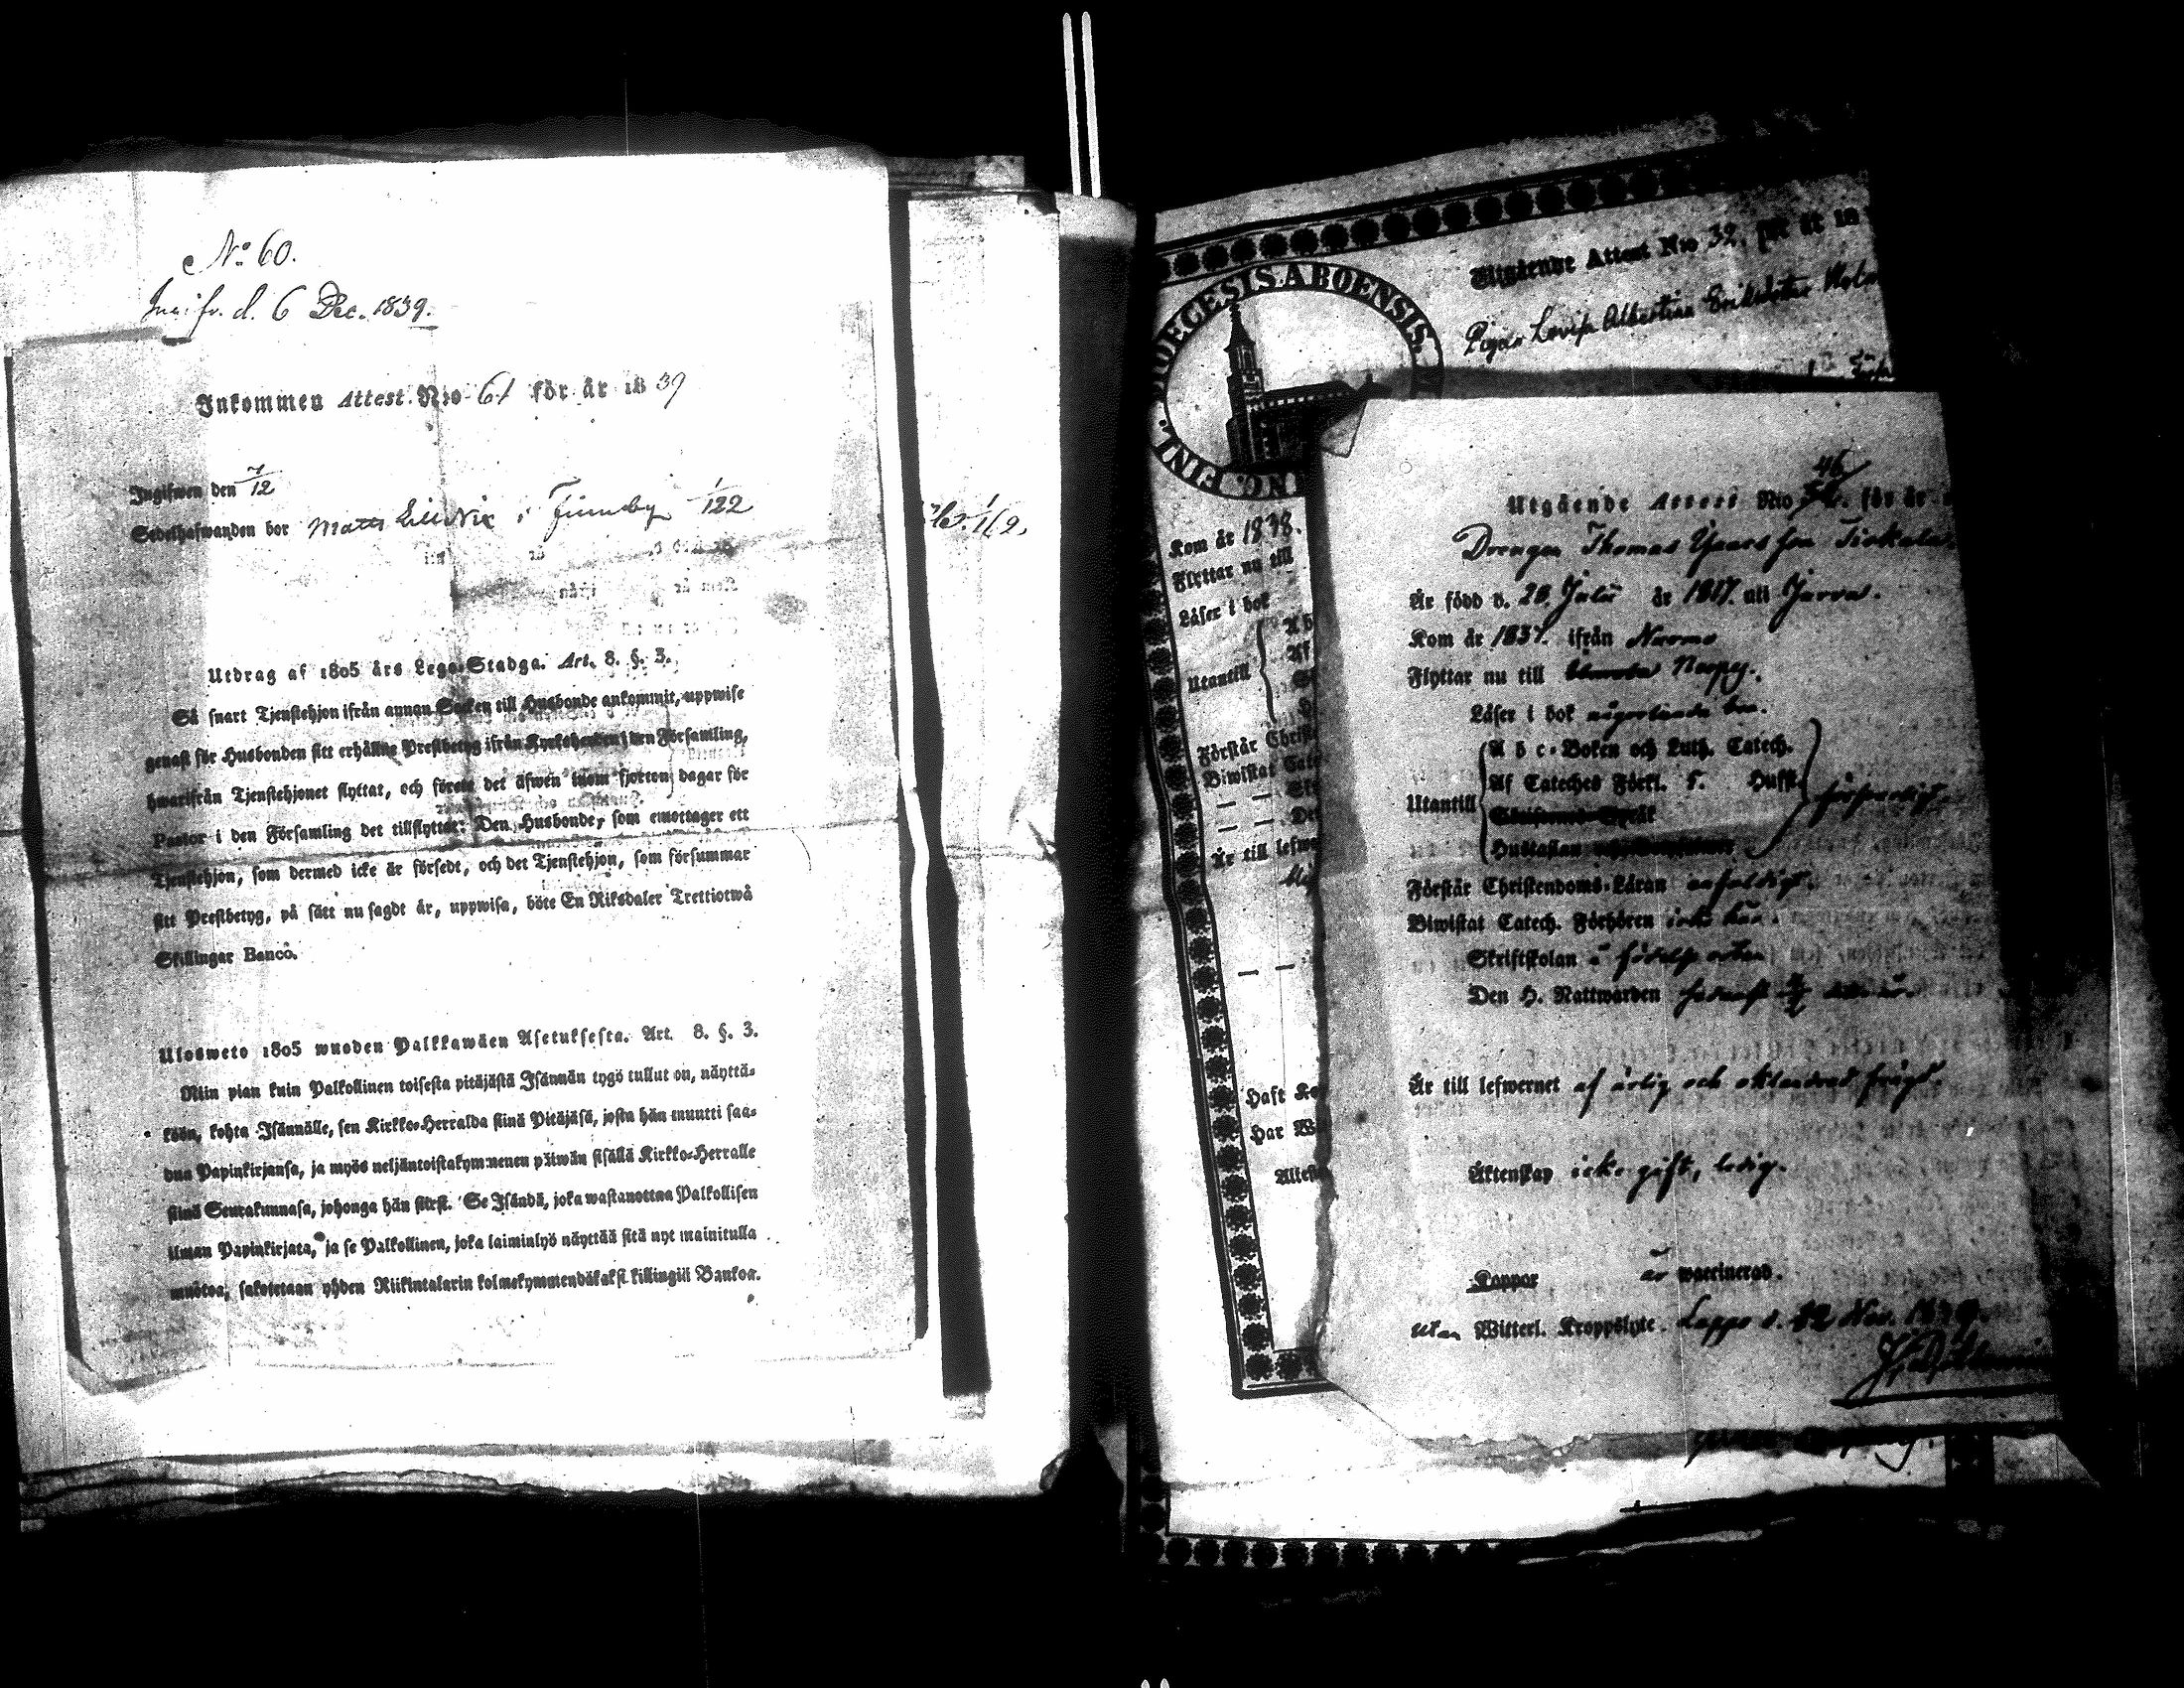 No 60.
d. 6 Dec. 1839.
Inkommen Attest. N:o 61 för år 1839
Ingifwen den 7/12
Sedelhafwanden bor Matts Lill Nix i Finnby 122
Utdrag af 1805 års Lego-Stadga. Art. 8. §. 3.
Så snart Tjenstehjon ifrån annan Socken till Husbonde ankommit, uppwise
genast för Husbonden sitt erhållne Prestbetyg ifrån Kyrkoherden i den Församling,
hwarifrån Tjenstehjonet flyttat, och förete det äfwen inom fjorton dagar för
Pastor i den Församling det tillflyttar: Den Husbonde, som emottager ett
Tjenstehjon, som dermed icke är försedt, och det Tjenstehjon, som försummar
sitt Prestbetyg, på sätt nu sagdt är, uppwisa, böte En Riksdaler Trettiotwå
Skillingar Banco.
Ulosweto 1805 wuoden Palkkawäen Asetuksesta. Art. 8. §. 3.
Niin pian kuin Palkollinen toisesta pitäjästä Isännän tygö tullut on, näyttä-
köön, kohta Isännälle, sen Kirkko-Herralda siinä Pitäjäsä, josta hän muutti saa-
dun Papinkirjansa, ja myös neljäntoistakymmenen päiwän sisällä Kirkko-Herralle
siinä Seurakunnasa, johonga hän siirst. Se Isändä, joka wastanottaa Palkollisen
ilman Papinkirjata, ja se Palkollinen, joka laiminlyö näyttää sitä nyt mainitulla
muotoa, sakotetaan yhden Riikintalarin kolmekymmendäkaksi killingiä Bankoa.
DIOECESIS ABOENSIS.
Utgående Attest N:o 32, för år 18
Pigan Lovisa Albertina Eriksdotter Holm
Kom år 1838.
Flyttar nu till
Läser i bok
Utantill
Förstår Christ
Biwistat Cate
Är till lefwe
Haft Ko
Har Wi
Attest
Utgående Attest N:o 46 för år
Drengen Thomas Tiokala
Är född d. 20 Julii år 1817. uti
Kom år 1837. ifrån Nurmo
Flyttar nu till Nerpes.
Läser i bok någorlunda bra.
A b c-Boken och Luth. Catech.
Af Cateches Förkl. 5. Hufst.
Utantill
Skriftenes Språk
Hustaflan
försvarligt.
Förstår Christendoms-Läran enfaldigt.
Biwistat Catech. Förhören
Skriftskolan å födelse orten
Den H. Nattwarden
Är till lefwernet af ärlig och oklandrad frägd.
Äktenskap icke gift, ledig.
Koppor är waccinerad.
utan Witterl. Kroppslyte. Lappo d. 12 Nov. 1839.